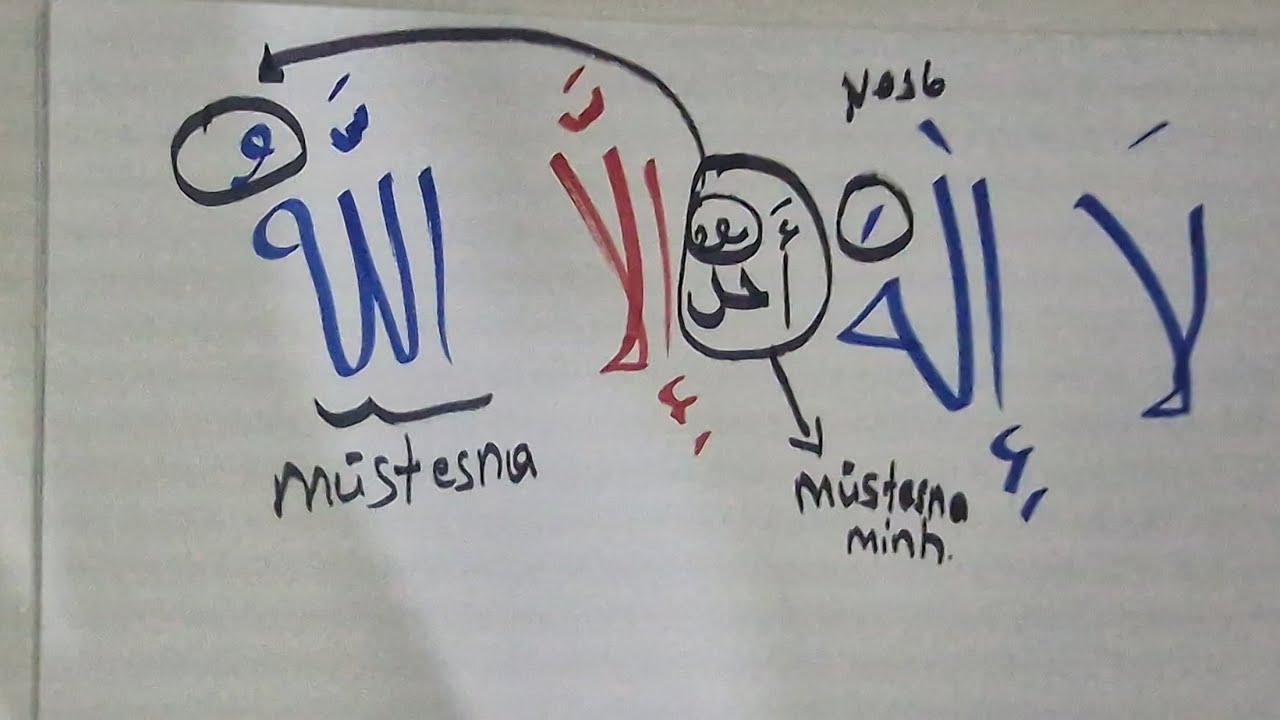 nasb
لَا إِلٰهَ أَحَدٌ إِلَّا اللَّهُ
müstesna
müstesna
minh.